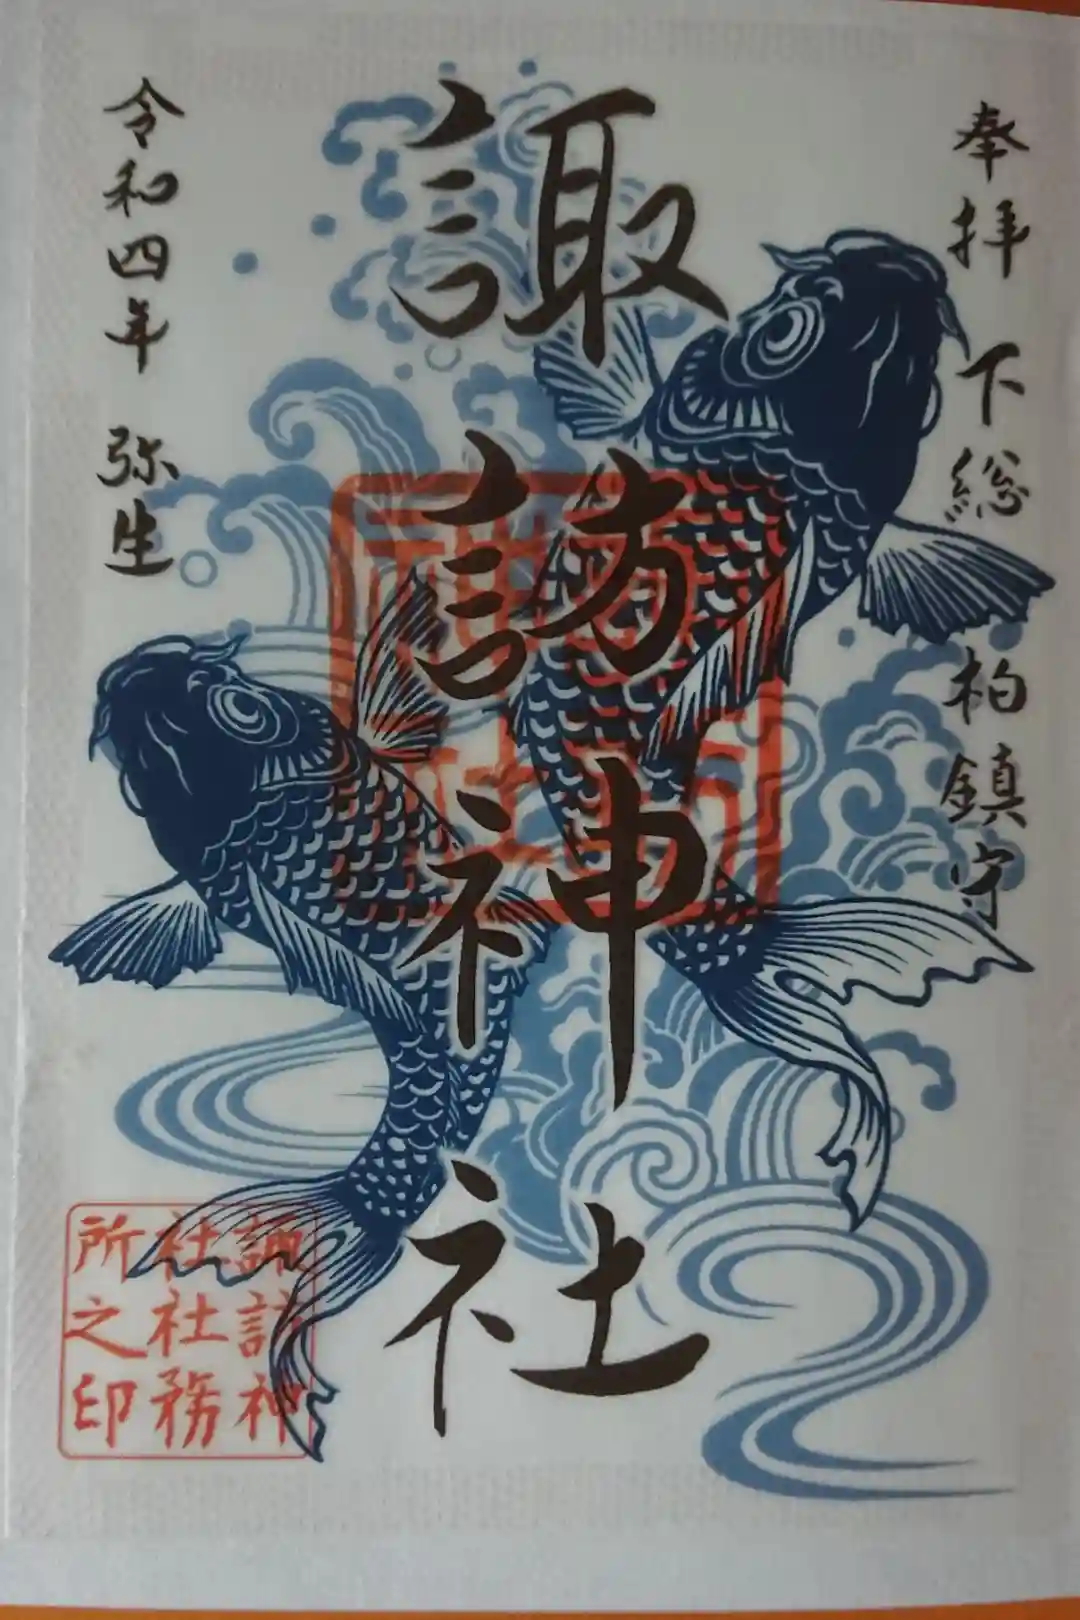 奉拝 下総柏鎮守
諏訪神社
令和四年 弥生
諏訪神社
諏訪神
社社務
所之印